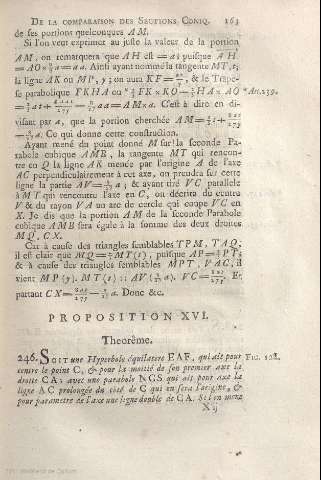 DE LA COMPARAISON DES SECTIONS CONIQ. 163
de ses portions quelconques AM.
Si l'on veut exprimer au juste la valeur de la portion
AM, on remarquera que AH est = a; puisque
Ainsi ayant nommé la tangente MT, t;
la ligne AK ou MP, y; on aura KF= & le Trape-
se parabolique FKHA ou FK × KO HA × AO *Art. 239.
C'est à dire en di-
visant par a, que la portion cherchée AM=
Ce qui donne cette construction.
Ayant mené du point donné M sur la seconde Pa-
rabole cubique AMB, la tangente MT qui rencon-
tre en Q la ligne AK menée par l'origine A de l'axe
AC perpendiculairement à cet axe, on prendra sur cette
ligne la partie AV= & ayant tiré VC parallele
à MT qui rencontre l'axe en C, on décrira du centre
V & du rayon VA un arc de cercle qui coupe VC en
X. Je dis que la portion AM de la seconde Parabole
cubique AMB sera égale à la somme des deux droites
MQ, CX.
Car à cause des triangles semblables TPM, TAQ;
il est clair que MQ= MT (t), puisque AP= PT;
& à cause des triangles semblables MPT, VAC, il
vient MP (y). MT (t) :: AV VC= Et
partant CX= Donc &c.
PROPOSITION XVI.
Theorême.
246. SOIT une Hyperbole équilatere EAF, qui ait pour FIG.
centre le point C, & pour la moitié de son premier axe la
droite CA; avec une parabole NCS qui ait pour axe la
ligne AC prolongée du côté de C qui en sera l'origine, &
pour parametre de l'axe une ligne double de CA. Si l'on mene
X ij